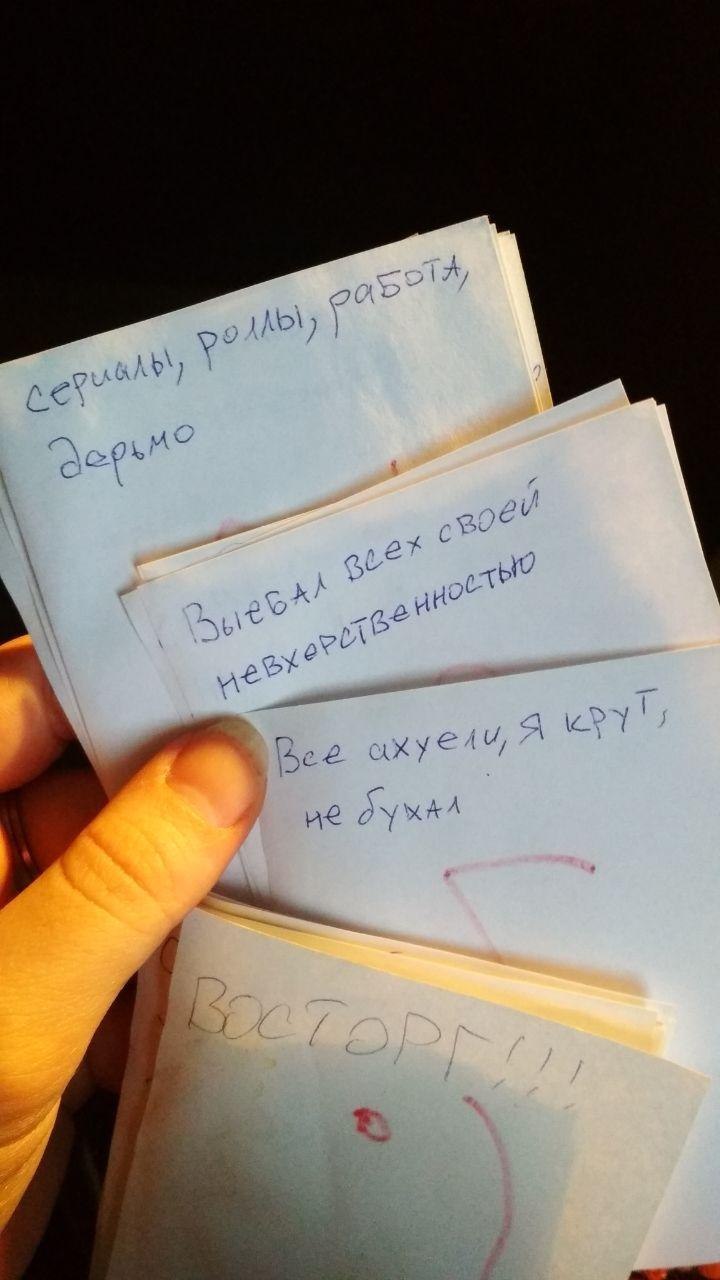 сериалы, роллы, работа,
дерьмо
Выебал всех своей
невхерственностью
Все ахуели, я крут,
не бухал
ВОСТОРГ!!!